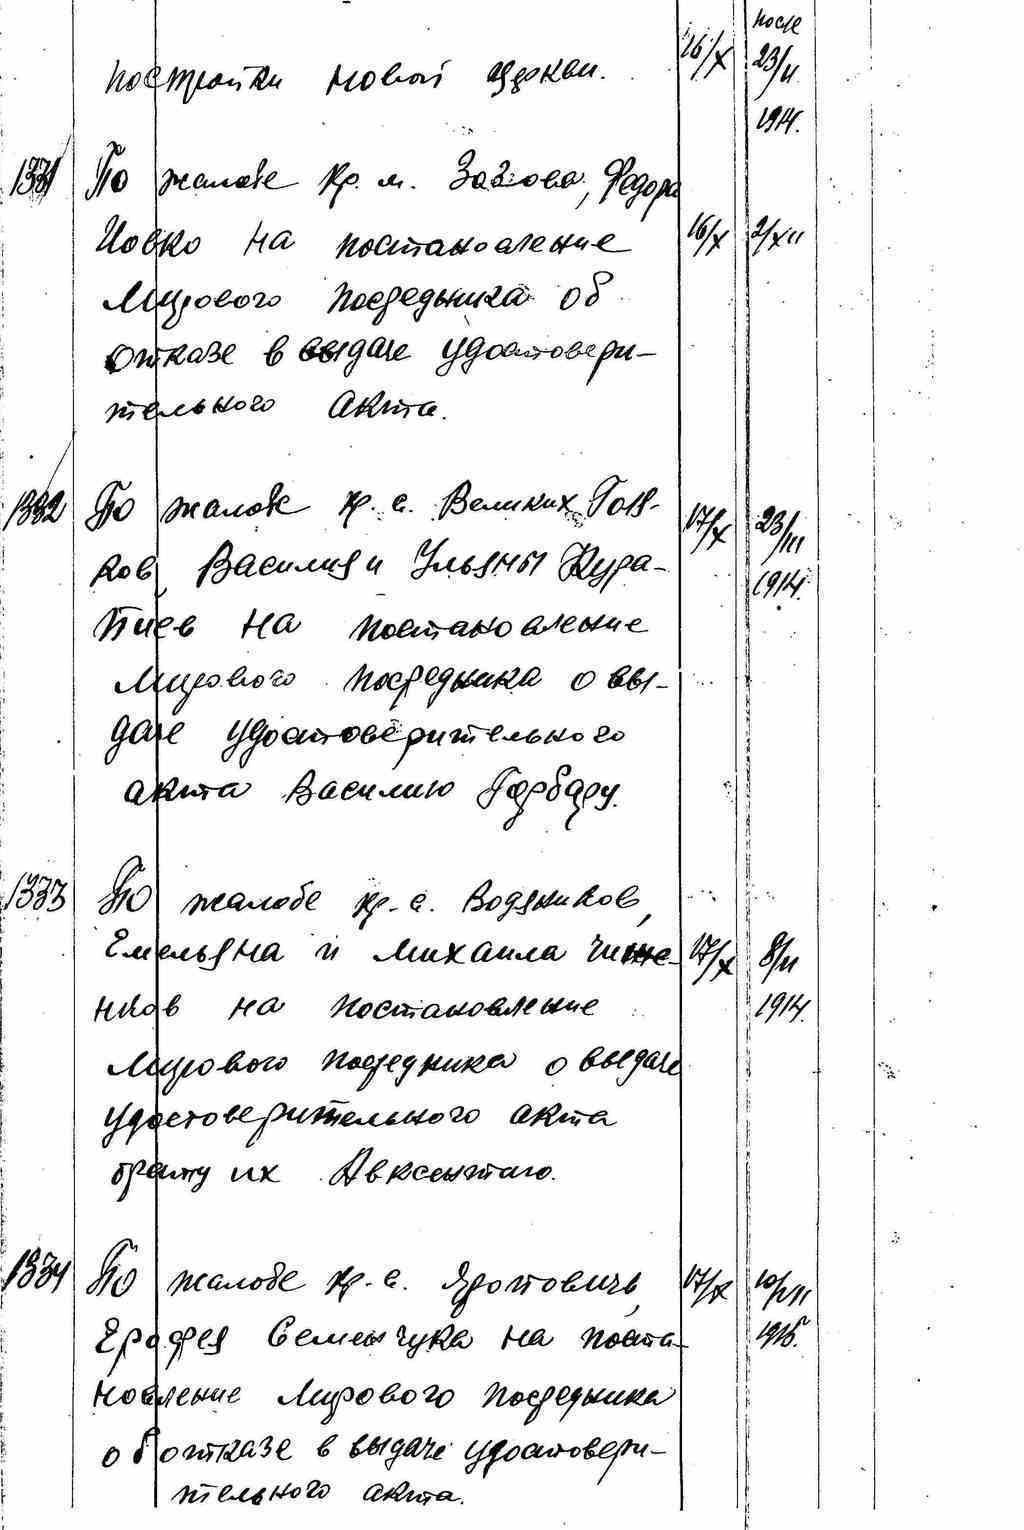 после
постройки новой церкви. 16/X 23/II
1914.
1331 По жалобе кр. м. Зазова, Федора
Иовко на постановление 16/X 2/XII
Мирового посредника об
отказе в выдаче удостовери-
тельного акта.
1332 По жалобе кр. с. Великих Голв- 17/X 23/III
ков, Василия и Ульяны Кура- 1914.
пиев на постановление
Мирового посредника о вы-
даче удостоверительного
акта Василию Горбару.
1333 По жалобе кр. с. Водяников,
Емельяна и Михаила Чиже- 17/X 8/II
нков на постановление 1914.
Мирового посредника о выдаче
удостоверительного акта
брату их Авксентию.
1334 По жалобе кр. с. Яротовичь, 17/X 10/VII
Ерофея Семенчука на поста- 1915.
новление Мирового посредника
об отказе в выдаче удостовери-
тельного акта.